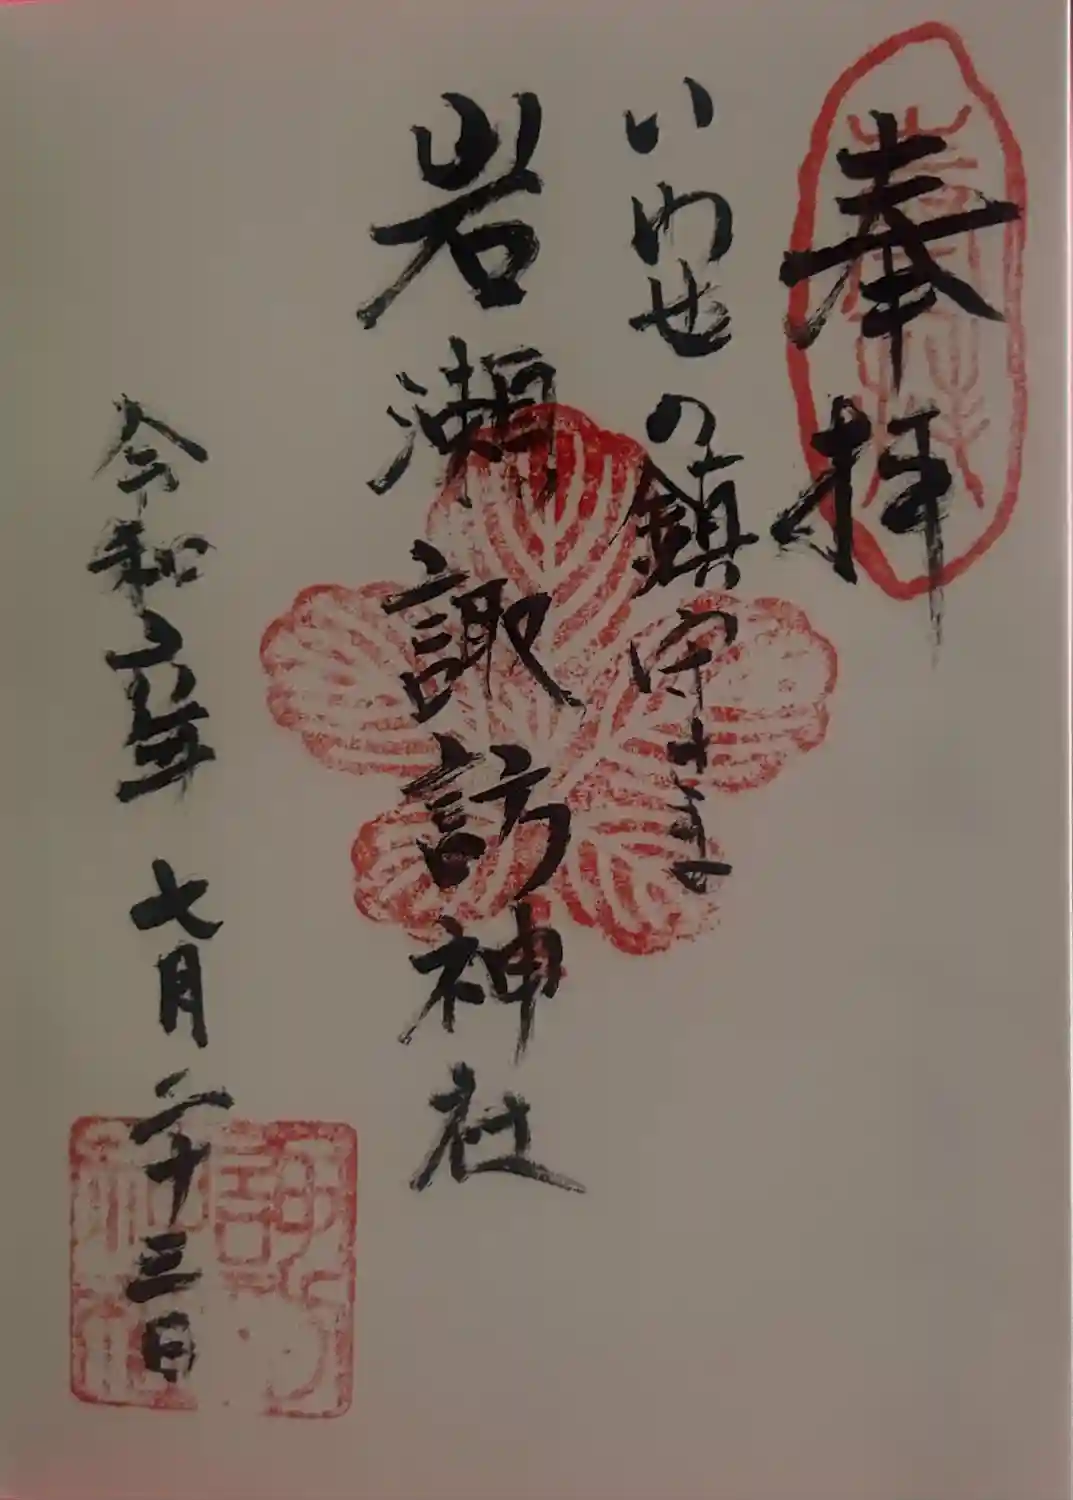 奉拝
いわせの鎮守さま
岩瀬諏訪神社
令和六年七月二十三日